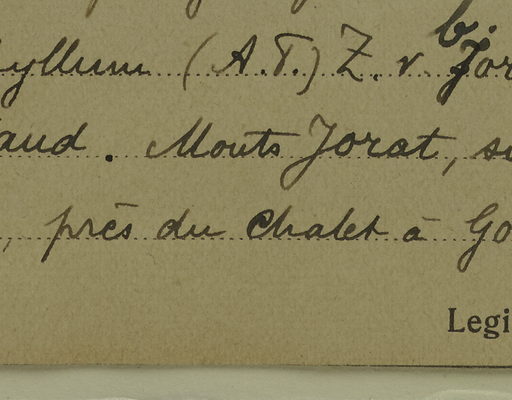 yllum (A.T.) Z. v. b. Jor
aud. Monts Jorat, su
, près du Chalet à Go
Legi